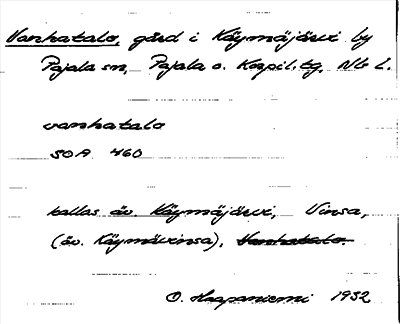 Vanhatalo, gård i Käymäjärvi by
Pajala sn, Pajala o. Korpil. tg, Nb l.
vanhatalo
SOA 460
kallas äv. Käymäjärvi, Vinsa,
(äv. Käymävinsa), Vanhatalo.
O. Haapaniemi 1932